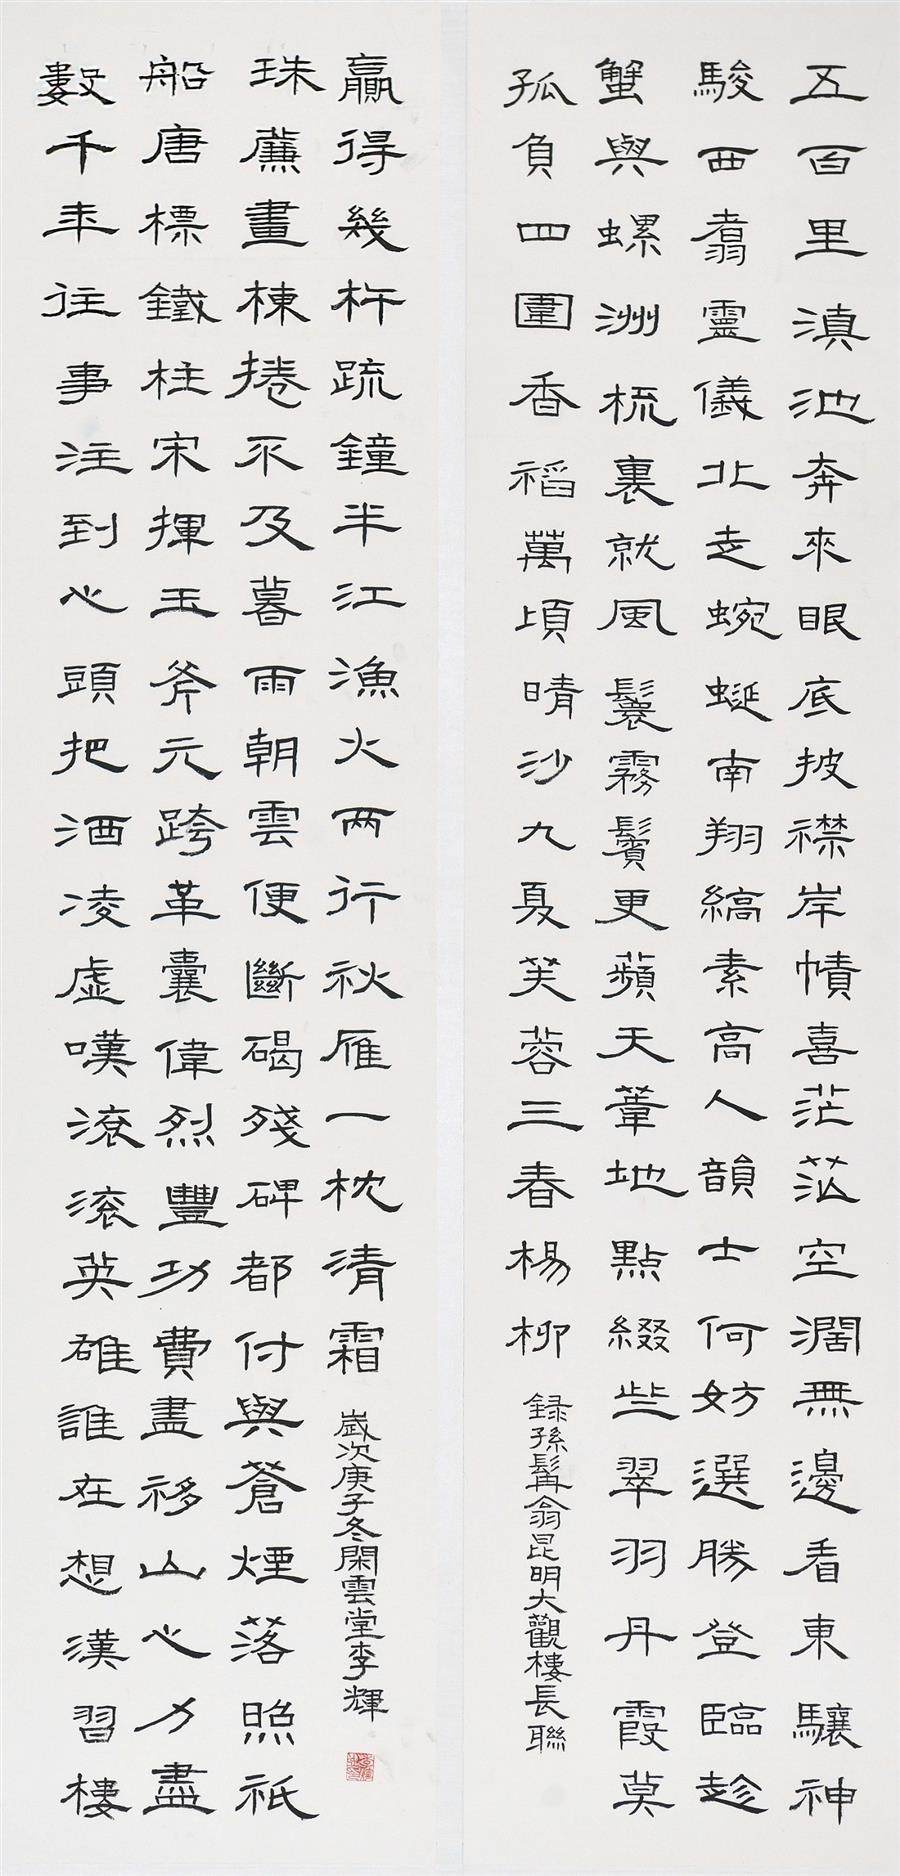 五百里滇池奔來眼底披襟岸幘喜茫茫空濶無邊看東驤神
駿西翥靈儀北走蜿蜒南翔縞素高人韻士何妨選勝登臨趁
蟹與螺洲梳裏就風鬟霧鬢更蘋天葦地點綴些翠羽丹霞莫
孤負四圍香稻萬頃晴沙九夏芙蓉三春楊柳
録孫髯翁昆明大觀樓長聯
數千年往事注到心頭把酒凌虛嘆滾滾英雄誰在想漢習樓
船唐標鐵柱宋揮玉斧元跨革囊偉烈豐功費盡移山心力盡
珠簾畫棟捲不及暮雨朝雲便斷碣殘碑都付與蒼煙落照祇
贏得幾杵疏鐘半江漁火兩行秋雁一枕清霜
歲次庚子冬閑雲堂李輝